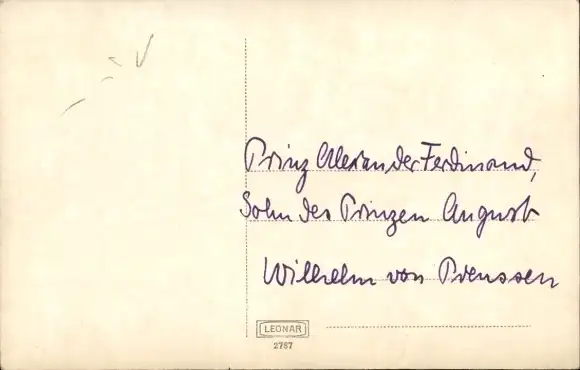 Prinz Alexander Ferdinand,
Sohn des Prinzen August
Wilhelm von Preussen
LEONAR
2787